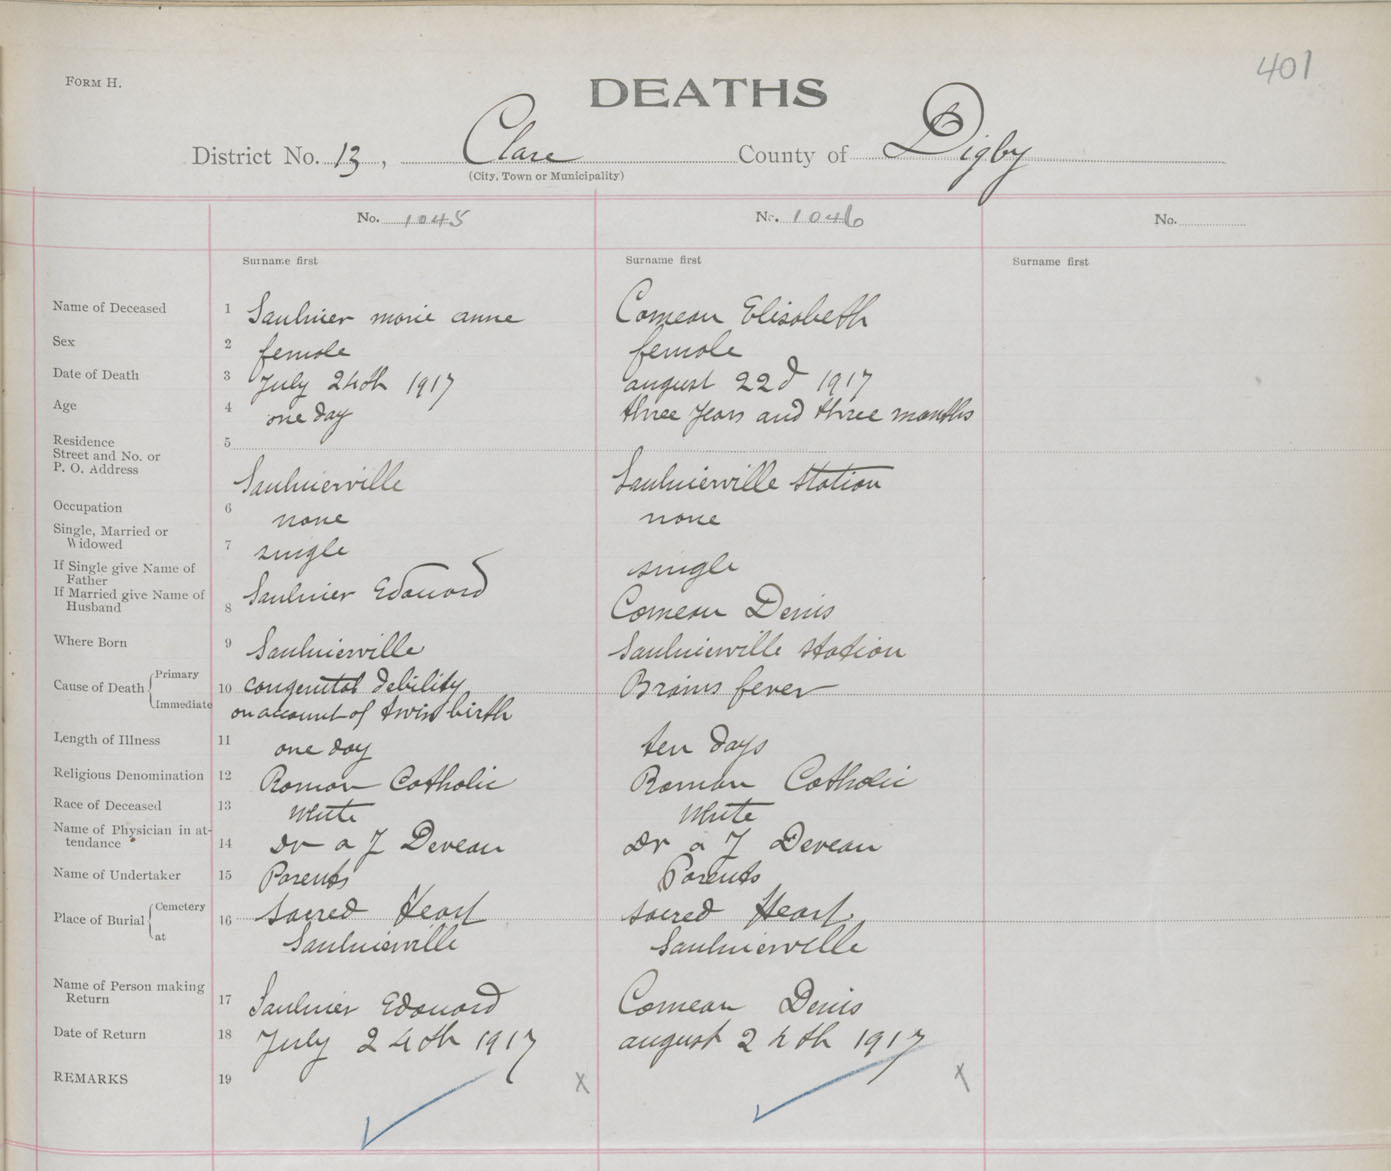 401
FORM H.
DEATHS
District No. 13, Clare County of Digby
(City, Town or Municipality)
No. 1045 No. 1046 No.
Surname first Surname first Surname first
Name of Deceased 1 Saulnier marie anne Comeau Elisabeth
Sex 2 female female
Date of Death 3 July 24th 1917 august 22d 1917
Age 4 one day three years and three months
Residence 5
Street and No. or
P. O. Address
Saulnierville Saulnierville Station
Occupation 6 none none
Single, Married or
Widowed 7 single single
If Single give Name of
Father
If Married give Name of
Husband 8 Saulnier Edouard Comeau Denis
Where Born 9 Saulnierville Saulnierville station
Cause of Death Primary
Immediate 10 congenital debility Brains fever
on account of twin birth
Length of Illness 11 one day ten days
Religious Denomination 12 Roman Catholic Roman Catholic
Race of Deceased 13 White White
Name of Physician in at-
tendance 14 Dr a J Deveau Dr a J Deveau
Name of Undertaker 15 Parents Parents
Place of Burial Cemetery
at 16 sacred Heart sacred Heart
Saulnierville Saulnierville
Name of Person making
Return 17 Saulnier Edouard Comeau Denis
Date of Return 18 July 24th 1917 august 24th 1917
REMARKS 19 x x